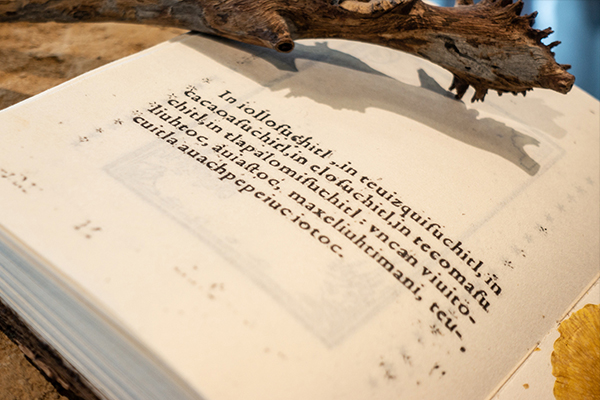 In iolloſuchitl, in teuizquiſuchitl, in
cacaoaſuchitl, in eloſuchitl, in tecomaſu
chitl, in tlapalomiſuchitl: vncan viuito-
liuhtoc, auiaſtoc, maxeliuhtimani, teu-
cuitlaauachpepeiuciotoc.